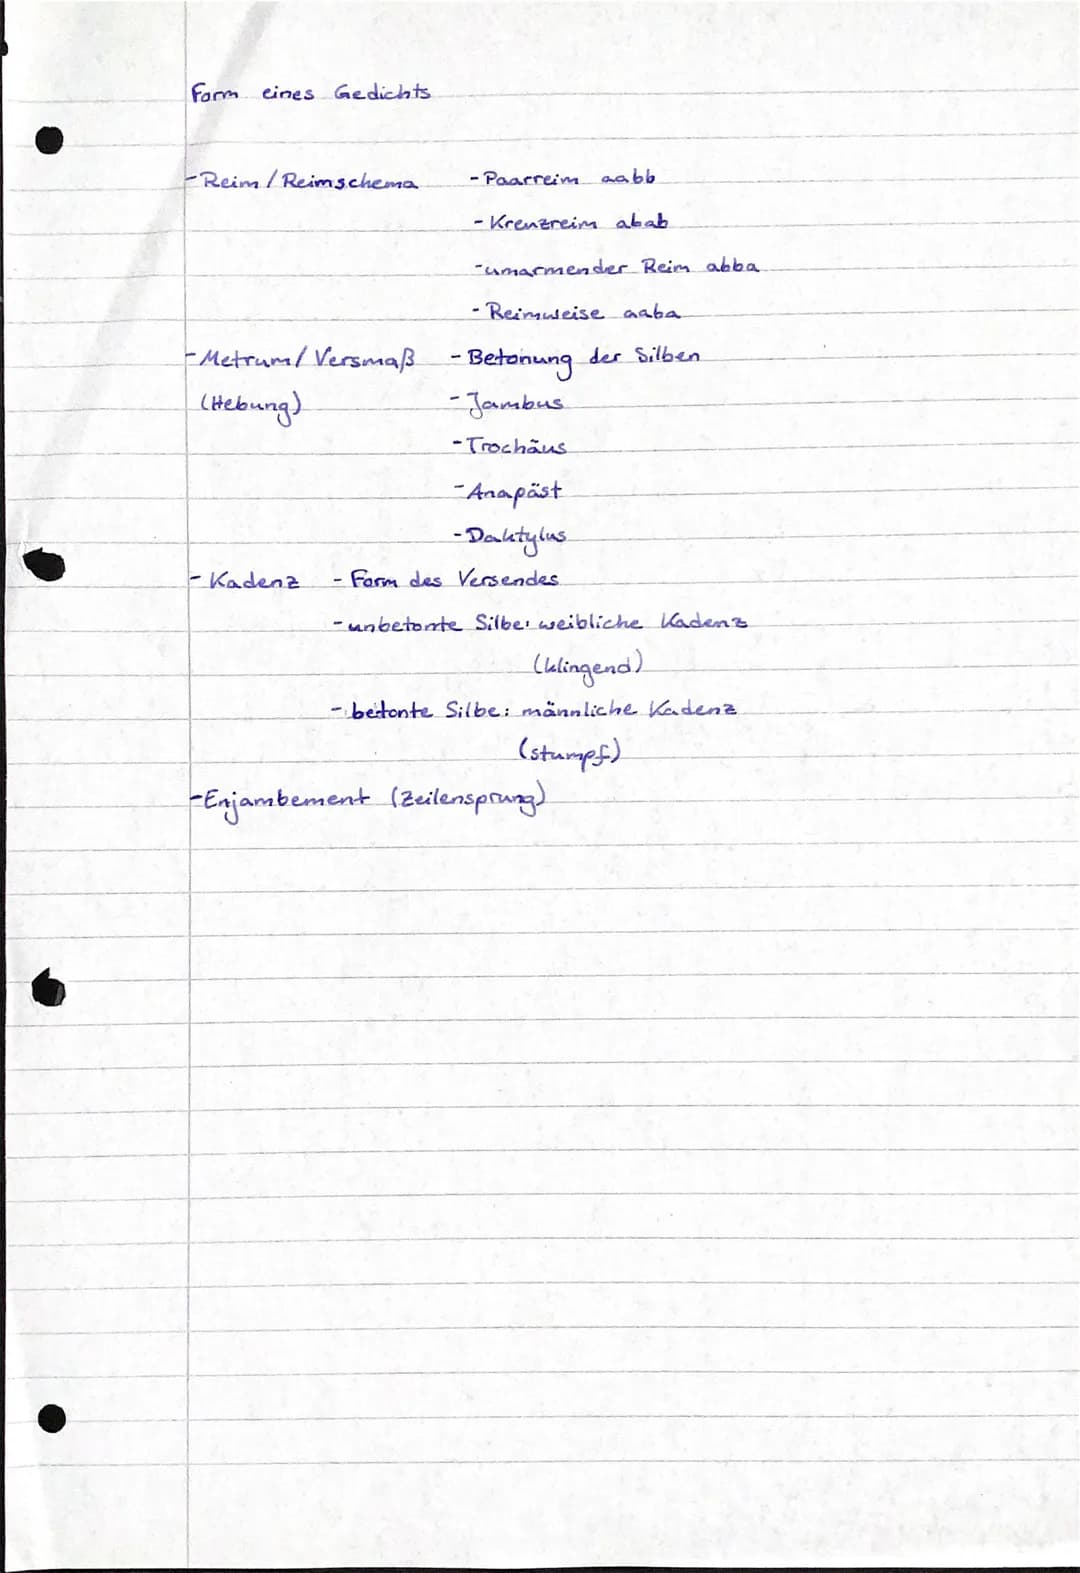 Form eines Gedichts
- Reim / Reimschema - Paarreim aabb
- Kreuzreim abab
- umarmender Reim abba
- Reimweise aaba
- Metrum / Versmaß - Betonung der Silben
(Hebung) - Jambus
- Trochäus
- Anapäst
- Daktylus
- Kadenz - Form des Versendes
- unbetonte Silbe: weibliche Kadenz
(klingend)
- betonte Silbe: männliche Kadenz
(stumpf)
- Enjambement (Zeilensprung)